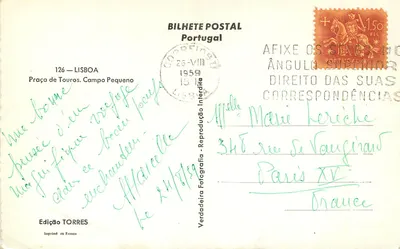 BILHETE POSTAL
Portugal
126 — LISBOA
Praça de Touros. Campo Pequeno
CORREIOS
26-VIII
1959
15
1$50
AFIXE OS
ÂNGULO SUPERIOR
DIREITO DAS SUAS
CORRESPONDÊNCIAS
Une bonne
pensée d'un
magnifique voyage
dans ce beau pays
enchanteur.
Marcelle
Le 24/8/59
Verdadeira Fotografia - Reprodução Interdita
Melle Marie Leriche
348 rue de Vaugirard
Paris XV
France
Edição TORRES